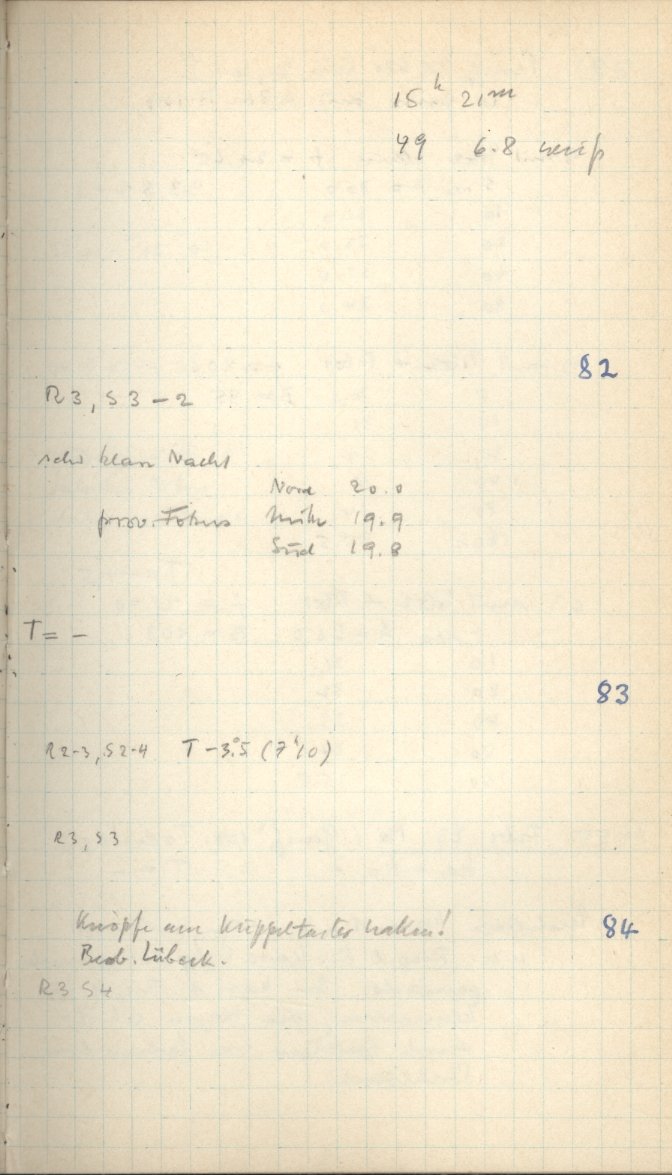 15h 21m
49 6.8
82
R3, S3-2
sehr klare Nacht
Nord 20.0
prov. Fokus Mitte 19.9
Süd 19.8
T = -
83
R2-3, S2-4 T -3°.5 (7h10)
R3, S3
Knöpfe am Kuppeltaster haken! 84
Beob. Lübeck.
R3 S4